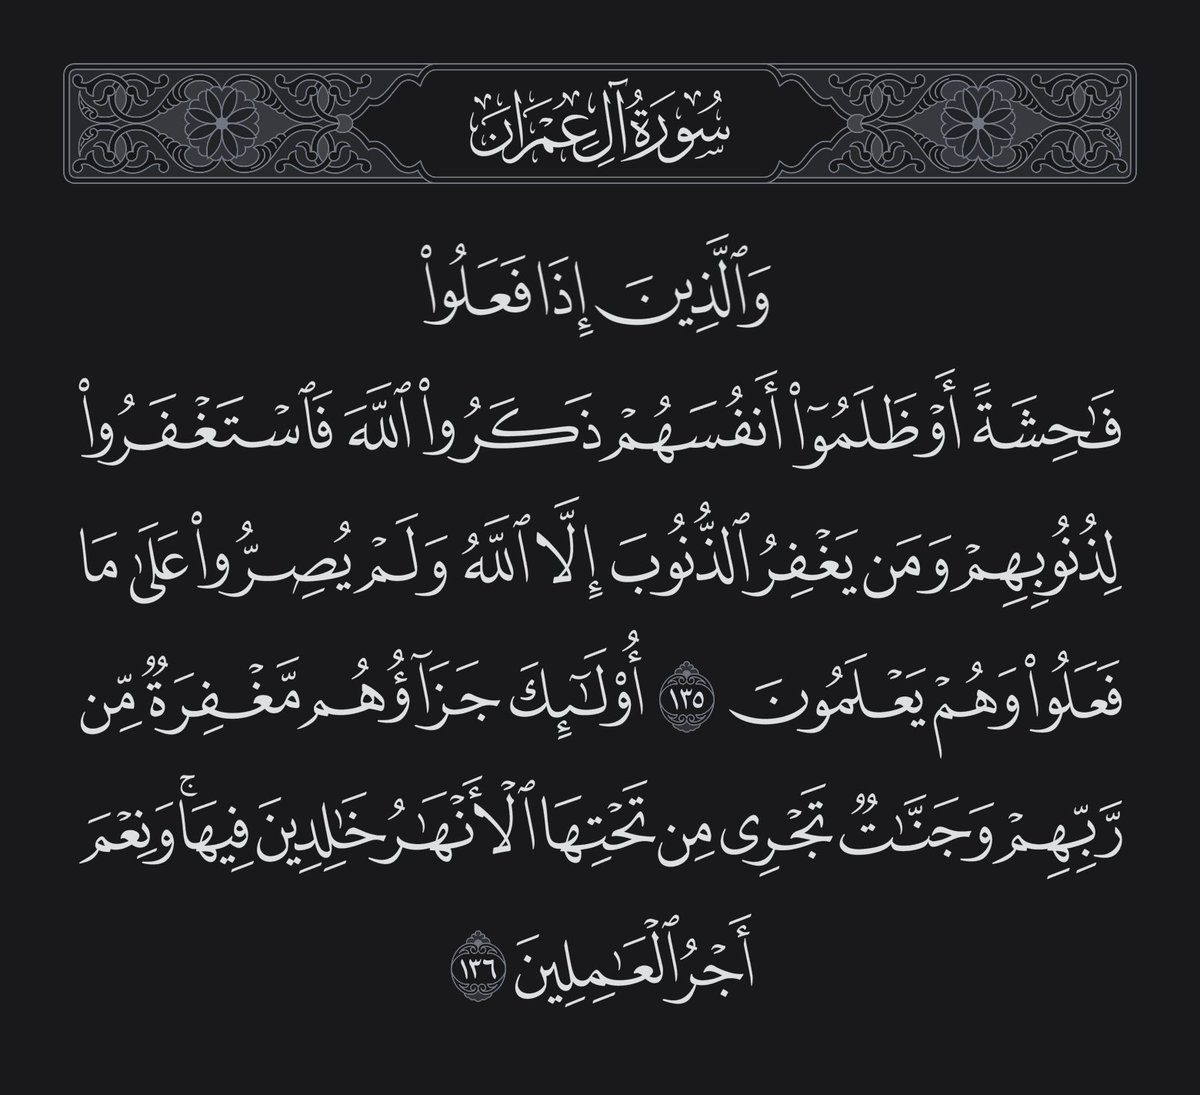 سُورَةُ آلِ عِمْرَانَ
وَٱلَّذِينَ إِذَا فَعَلُوا۟
فَـٰحِشَةً أَوْ ظَلَمُوٓا۟ أَنفُسَهُمْ ذَكَرُوا۟ ٱللَّهَ فَٱسْتَغْفَرُوا۟
لِذُنُوبِهِمْ وَمَن يَغْفِرُ ٱلذُّنُوبَ إِلَّا ٱللَّهُ وَلَمْ يُصِرُّوا۟ عَلَىٰ مَا
فَعَلُوا۟ وَهُمْ يَعْلَمُونَ ١٣٥ أُو۟لَـٰٓئِكَ جَزَآؤُهُم مَّغْفِرَةٌ مِّن
رَّبِّهِمْ وَجَنَّـٰتٌ تَجْرِى مِن تَحْتِهَا ٱلْأَنْهَـٰرُ خَـٰلِدِينَ فِيهَا ۚ وَنِعْمَ
أَجْرُ ٱلْعَـٰمِلِينَ ١٣٦